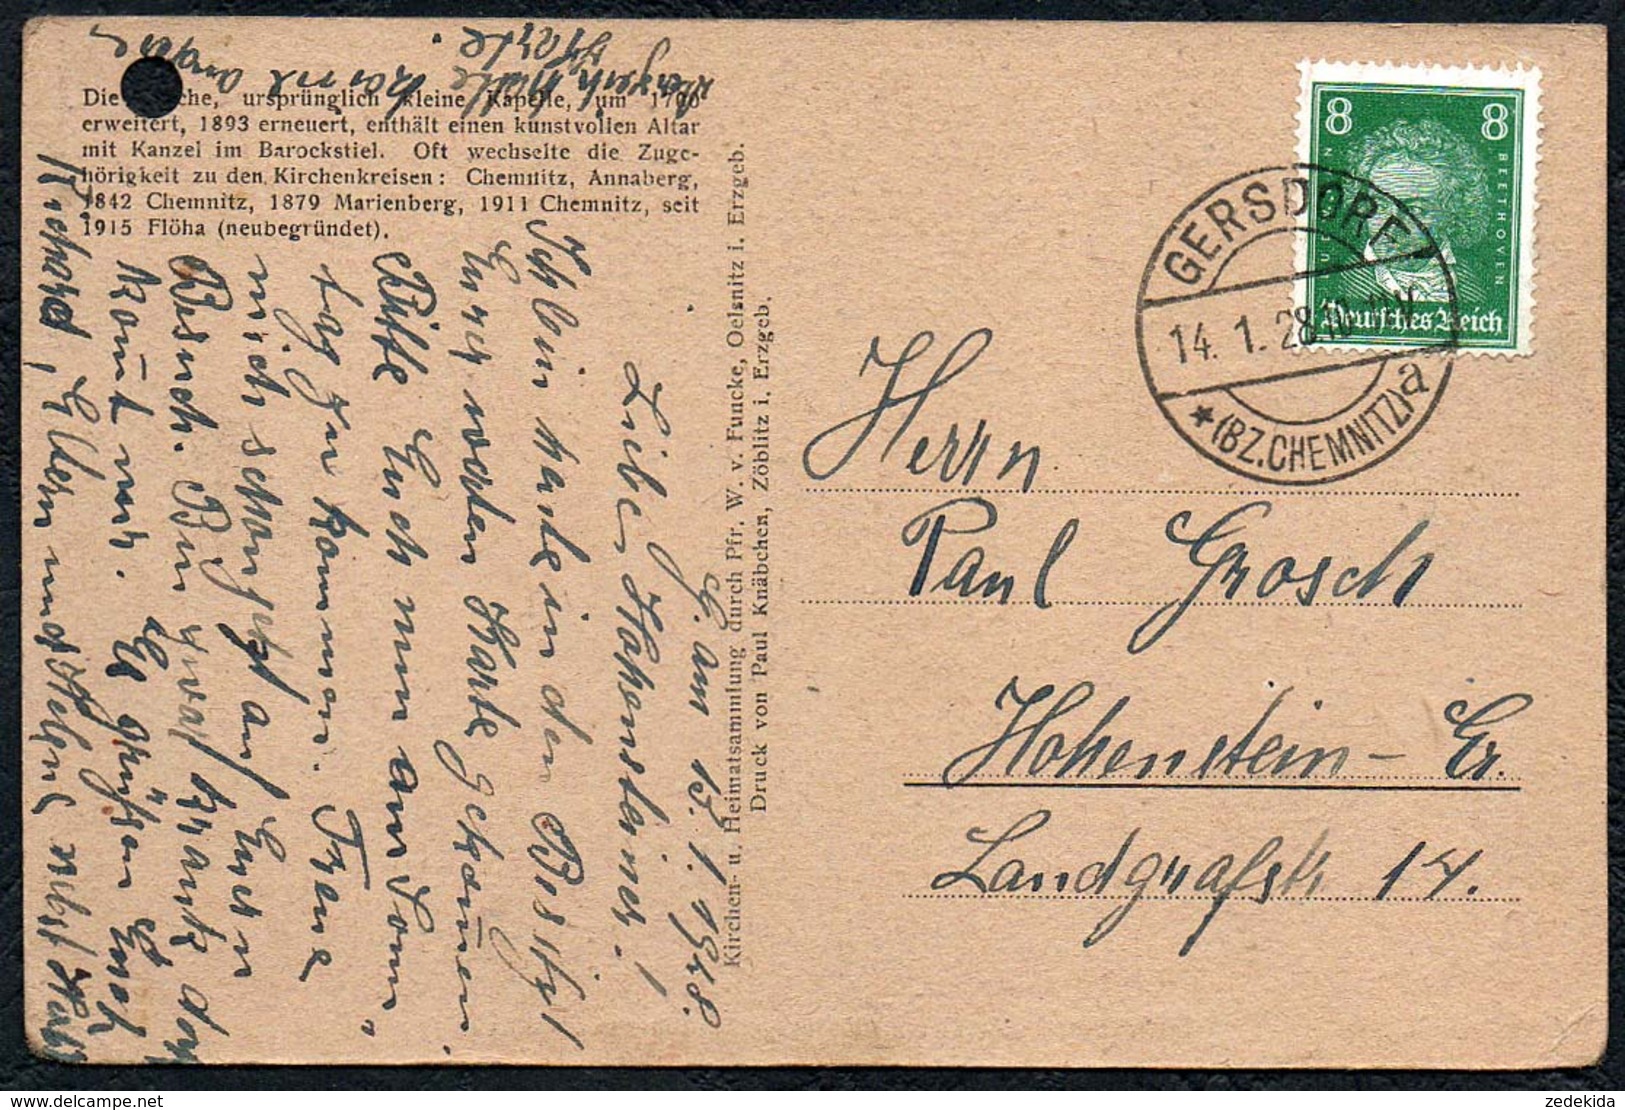 Die che, ursprünglich kleine Kapelle, um 1700
erweitert, 1893 erneuert, enthält einen kunstvollen Altar
mit Kanzel im Barockstiel. Oft wechselte die Zuge-
hörigkeit zu den Kirchenkreisen: Chemnitz, Annaberg,
1842 Chemnitz, 1879 Marienberg, 1911 Chemnitz, seit
1915 Flöha (neubegründet).
G. am 13. 1. 1928.
Liebe Hohensteiner!
Ich bin heute in den Besitz
Eurer werten Karte gekommen
Bitte Euch nun am Sonn-
tag zu kommen. Freue
mich schon jetzt auf Euern
Besuch. Bin zwar krank, doch
kommt nur. Es grüßen Euch
Richard, Eltern und
Karte.
Kirchen- u. Heimatsammlung durch Pfr. W. v. Funcke, Oelsnitz i. Erzgeb.
Druck von Paul Knäbchen, Zöblitz i. Erzgeb.
8 8
BEETHOVEN
Deutsches Reich
GERSDORF
14. 1. 28. 10-11 V
a
* (BZ. CHEMNITZ)
Herrn
Paul Grosch
Hohenstein-Er.
Landgrafstr 14.
zedekida